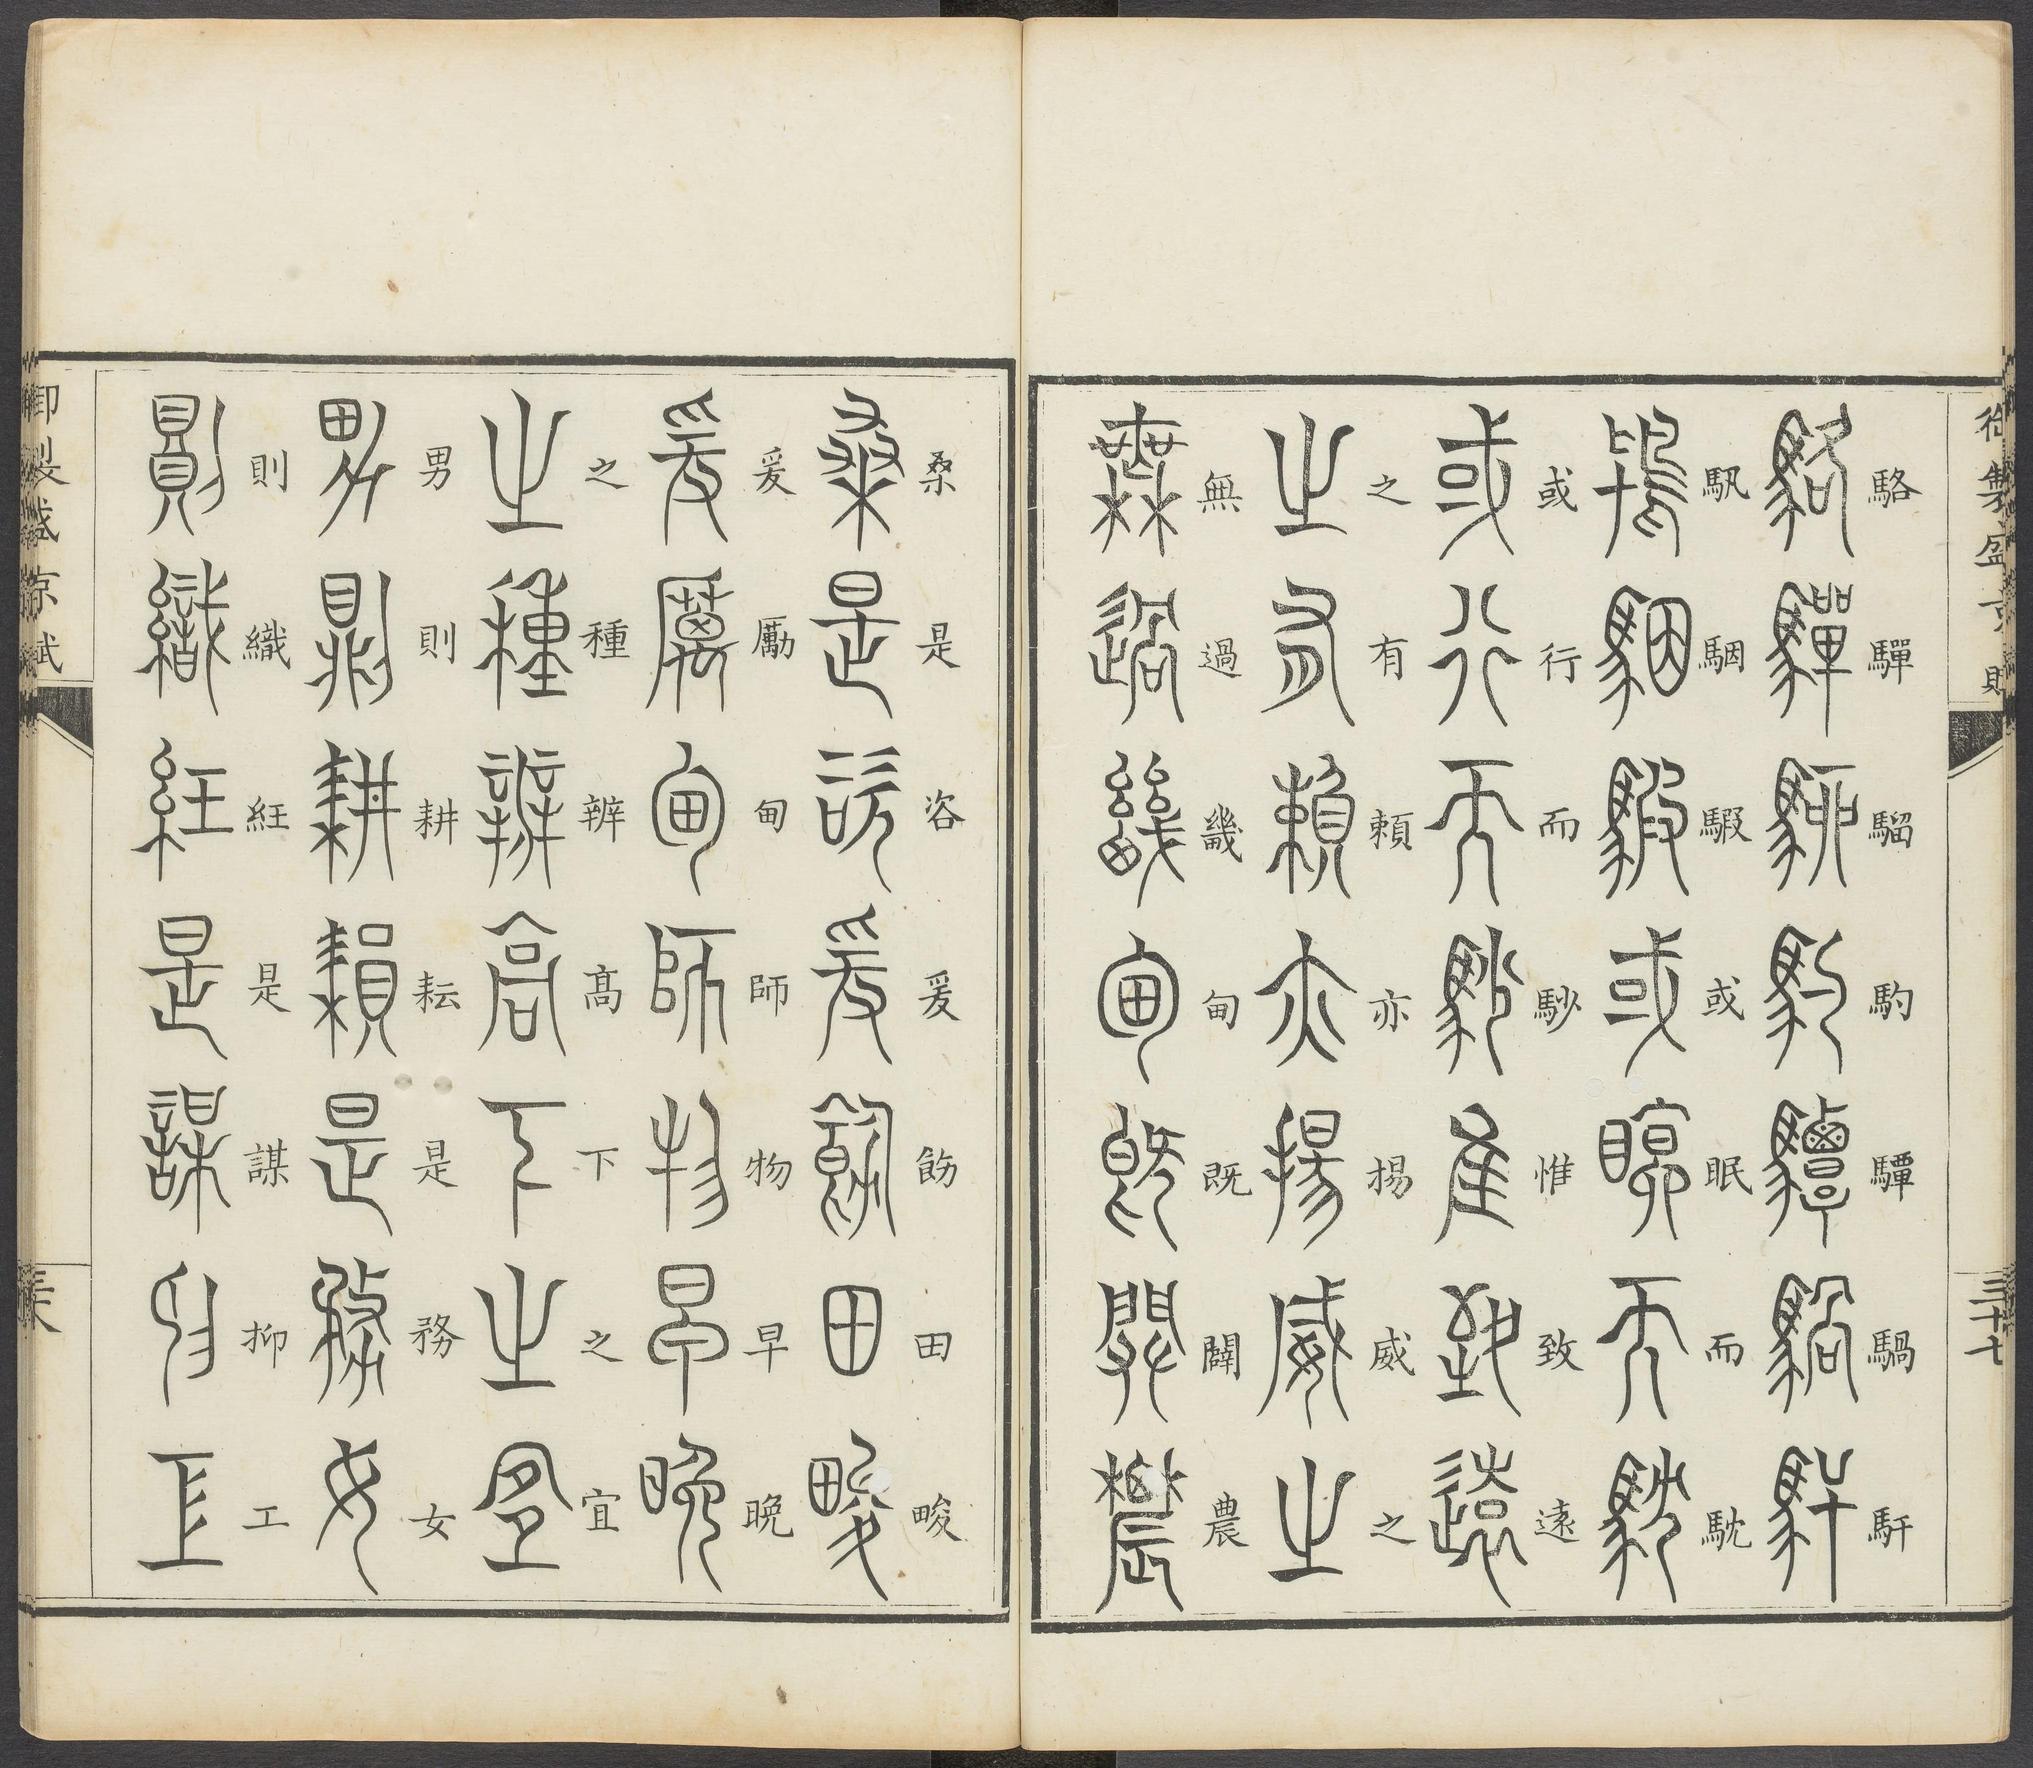 御製盛京賦
三十七
駱驒騮馰驔騧馯
駂駰騢或眠而
或行而惟致遠
之有賴亦揚威之
無過畿甸既闢農
桑是咨爰飭田畯
爰勵甸師物早晚
之種辨高下之宜
男則耕耘是務女
則織紝是謀抑工
御製盛京賦